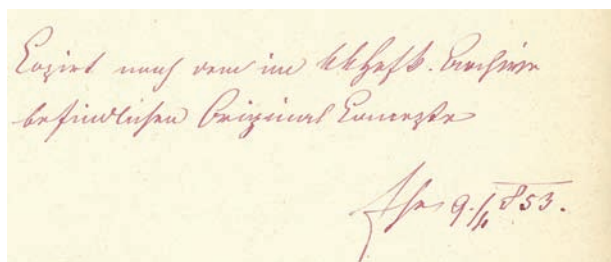 Copirt nach dem im kk Hofk. Archive
befindlichen Original Concepte
9./1 853.